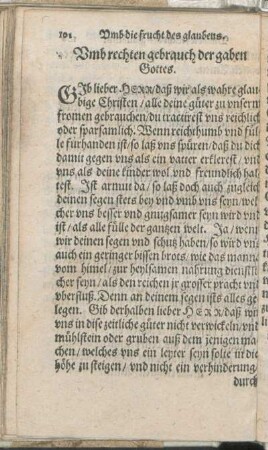 102 Vmb die frucht des glaubens.
Vmb rechten gebrauch der gaben
Gottes.
GIb lieber HERR/ daß wir als wahre glau⸗
bige Christen/ alle deine güter zu vnserm
fromen gebrauchen/ du tractirest vns reichlich
oder sparsamlich. Wenn reichthumb vnd fül⸗
le fürhanden ist/ so laß vns spüren/ daß du dich
damit gegen vns als ein vatter erklerest/ vnd
vns als deine kinder wol vnd freundlich hal⸗
test. Ist armut da/ so laß doch auch zugleich
deinen segen stets bey vnd vmb vns seyn/ wel⸗
cher vns besser vnd gnugsamer seyn wird vnd
ist/ als alle fülle der gantzen welt. Ja/ wenn
wir deinen segen vnd schutz haben/ so wird vns
auch ein geringer bissen brots, wie das mann
vom himel/ zur heylsamen nahrung dienstli⸗
cher seyn/ als den reichen jr grosser pracht vnd
vberfluß. Denn an deinem segen ists alles ge⸗
legen. Gib derhalben lieber HERR/ daß wir
vns in dise zeitliche güter nicht verwickeln/ vnd
mühlstein oder gruben auß dem jenigen ma⸗
chen/ welches vns ein leyter seyn solte in die
höhe zu steigen/ vnd nicht ein verhinderung/
durch